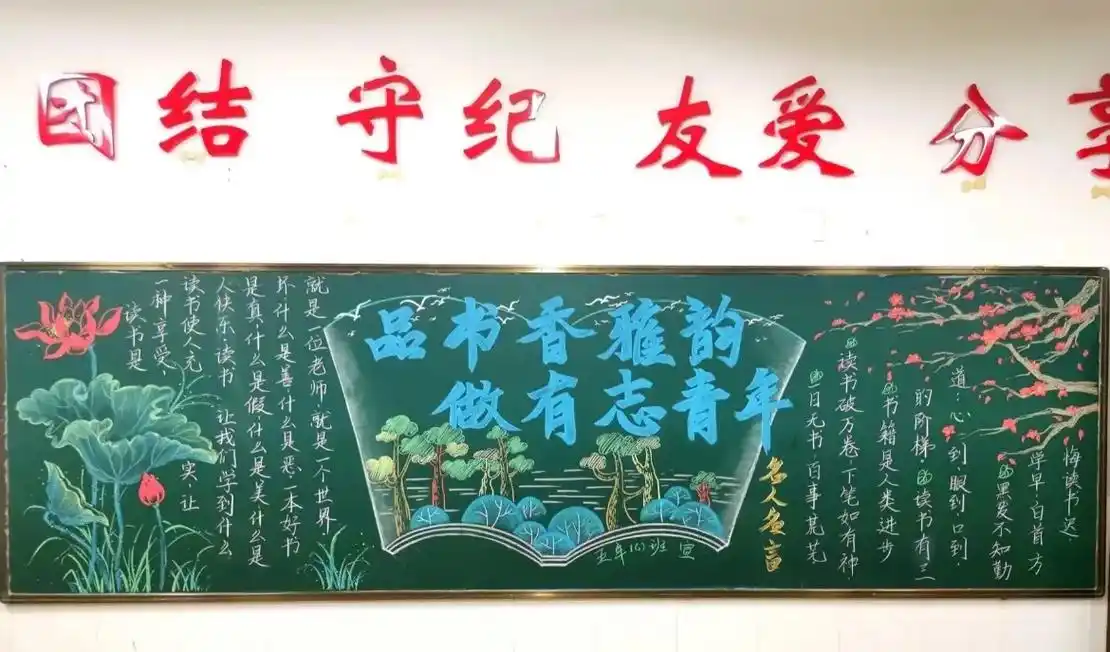 团结 守纪 友爱 分享
品书香雅韵
做有志青年
读书是
一种享受,
读书使人充实,让
人快乐.读书让我们学到什么
是真.什么是假什么是美什么是
坏什么是善什么是恶.一本好书
就是一位老师.就是一个世界
名人名言
一日无书,百事荒芜
读书破万卷,下笔如有神
书籍是人类进步
的阶梯.读书有三
道:心到.眼到.口到.
黑发不知勤
学早,白首方
悔读书迟
班 宣